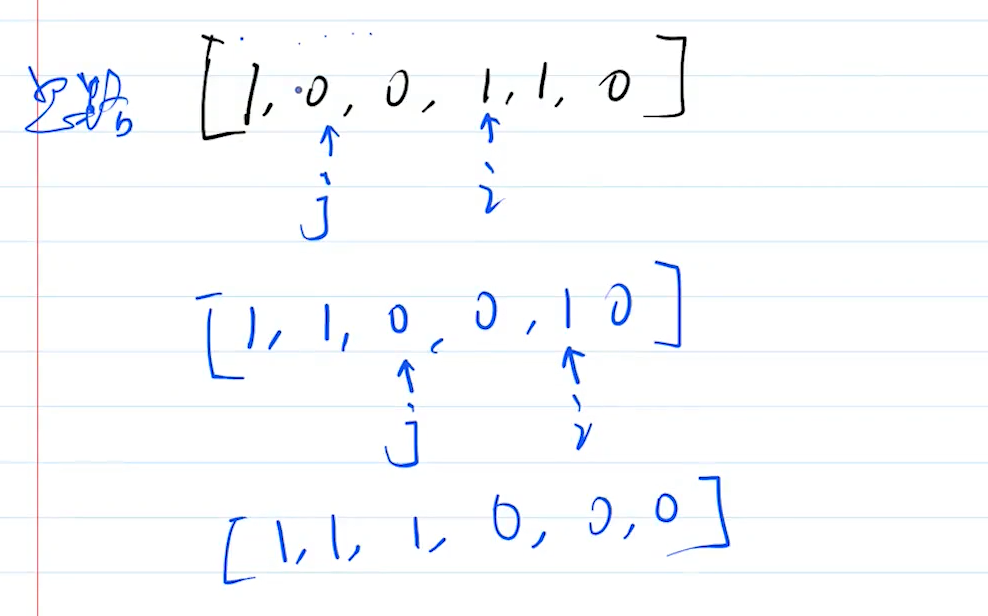 [1, 0, 0, 1, 1, 0]
j i
[1, 1, 0, 0, 1 0]
j i
[1, 1, 1, 0, 0, 0]